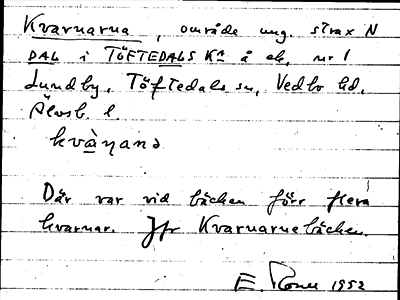 Kvarnarna, område ung. strax N
DAL i TÖFTEDALS Kª å ek. nr 1
Lundby, Töftedals sn, Vedbo hd,
Älvsb. l.
kvàɳanə
Där var vid bäcken förr flera
kvarnar. Jfr Kvarnarnebäcken.
E. 1952